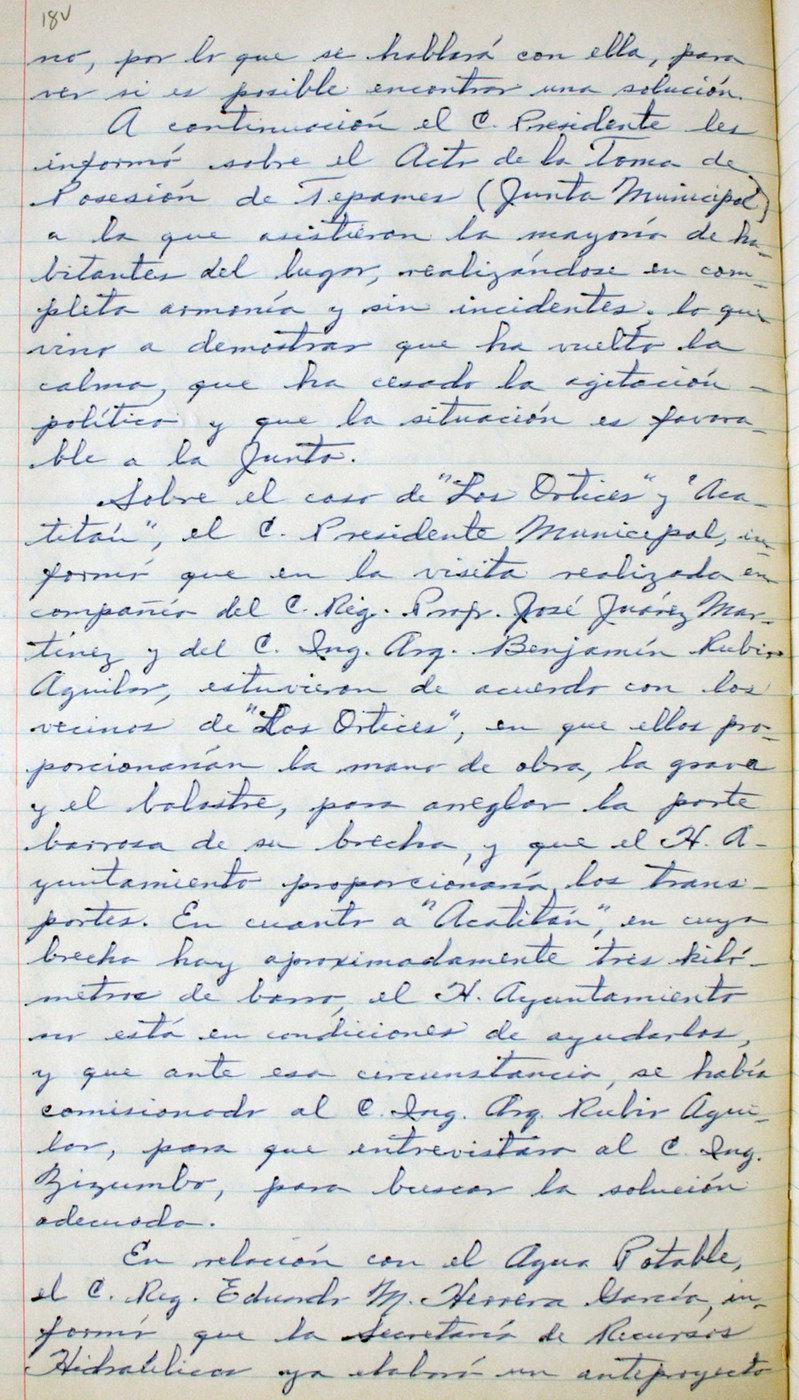 18v
no, por lo que se hablará con ella, para
ver si es posible encontrar una solución.
A continuación el C. Presidente les
informó sobre el Acto de la Toma de
Posesión de Tepames (Junta Municipal)
a la que asistieron la mayoría de ha-
bitantes del lugar, realizándose en com-
pleta armonía y sin incidentes, lo que
vino a demostrar que ha vuelto la
calma, que ha cesado la agitación -
política y que la situación es favora-
ble a la Junta.
Sobre el caso de "Los Ortices" y "Aca-
titán", el C. Presidente Municipal, in-
formó que en la visita realizada en
compañía del C. Reg. Profr. José Juárez Mar-
tínez y del C. Ing. Arq. Benjamín Rubio
Aguilar, estuvieron de acuerdo con los
vecinos de "Los Ortices", en que ellos pro-
porcionarían la mano de obra, la grava
y el balastre, para arreglar la parte
barrosa de su brecha, y que el H. A-
yuntamiento proporcionaría los trans-
portes. En cuanto a "Acatitán", en cuya
brecha hay aproximadamente tres kiló-
metros de barro, el H. Ayuntamiento
no está en condiciones de ayudarlos,
y que ante esa circunstancia, se había
comisionado al C. Ing. Arq. Rubio Agui-
lar, para que entrevistara al C. Ing.
Bizumbo, para buscar la solución
adecuada.
En relación con el Agua Potable,
el C. Reg. Eduardo M. Herrera García, in-
formó que la Secretaría de Recursos
Hidraúlicos ya elaboró un anteproyecto